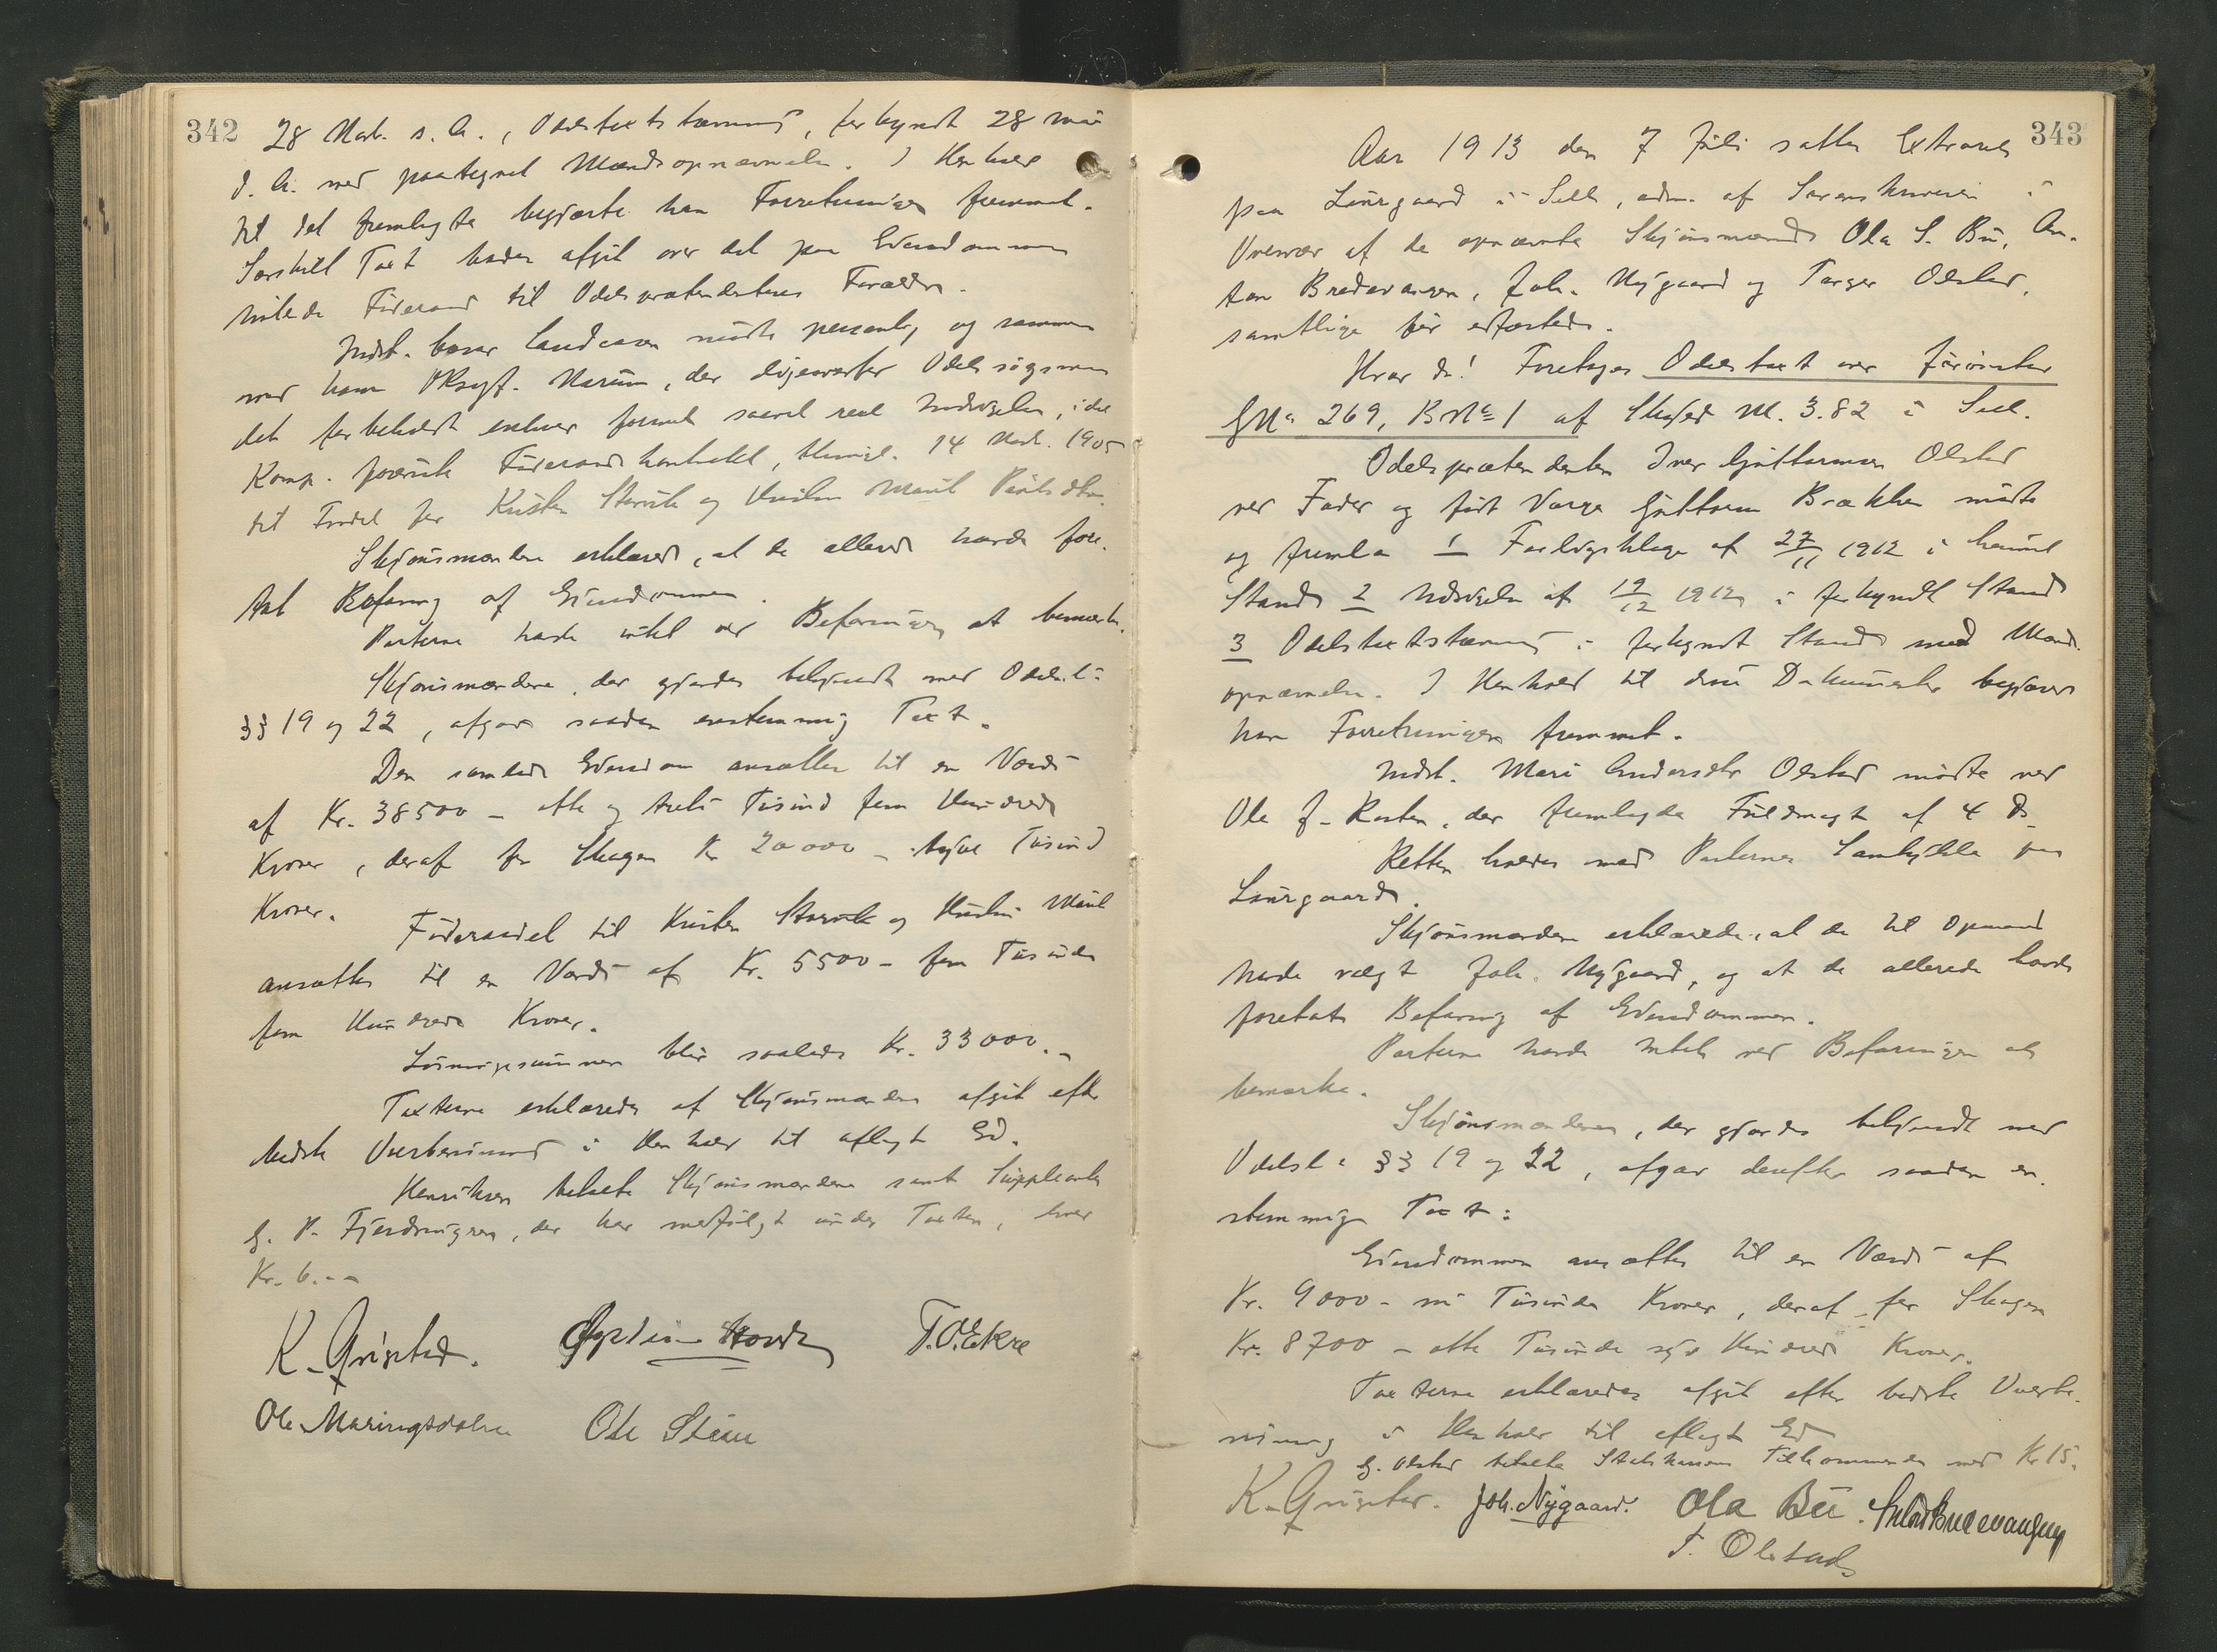 342
28 Marts s. A., Odelstakststævning, forkyndt 28 mai
d. A. med paategnet Mandsopnævnelse. I Henhold
til det fremlagte begjærte han Forretningen fremmet.
Særskilt Taxt bades afgit over det paa Eiendommen
hvilende Føderaad til Odelsprætendentens Forældre.
Indst. møtte personlig og sammen
med ham O.Rsagf. Marum, der ligeoverfor Odelssøgsmaa
det forbeholdt enhver formel saavel reel Indsigelse, idet
Komp. Føderaadskontrakt, thingl. 14 Marts 1905
til Fordel for Kristen Storvik og Hustru Marit
Skjønsmændene erklærede, at de allerede havde fore-
tat Befaring af Eiendommen.
Parterne havde intet ved Befaringen at bemærke.
Skjønsmændene, der gjordes bekjendt med Odelsl:
§§ 19 og 22, afgav saadan enstemmig Taxt.
Den samlede Eiendom ansættes til en Værdi
af Kr. 38500 - otte og treti Tusind fem Hundrede
Kroner, deraf for Skogen Kr 20000 - tyve Tusind
Kroner.
Føderaadet til Kristen Storvik og Hustru Marit
ansættes til en Værdi af Kr. 5500 - fem Tusinde
fem Hundrede Kroner.
Løsningssummen blir saaledes Kr. 33000.-
Taxterne erklæredes af Skjønsmændene afgit efter
bedste Overbevisning i Henhold til aflagt Ed.
Henriksen betalte Skjønsmændene samt Suppleanten
G. P. Fjerdingren, der har medfulgt under Taxten, hver
Kr. 6.-
K. Gristad. T.O. Ekre
Ole Maringsdalen Ole Steine
343
Aar 1913 den 7 Juli sattes Extraret
paa Laurgaard i Sell, adm. af Sorenskriveren i
Overvær af de opnævnte Skjønsmænd Ola S. Bu, An-
ton Bredevangen, Joh. Nygaard og Torger Olstad,
samtlige før edfæstede.
Hvor da! Foretoges Odelstaxt over
GNo 269, BNo 1 af Skyld M. 3.82 i Sell.
Odelsprætendenten Iver Guttormsen Olstad
ved Fader og født Værge Guttorm Brækken møtte
og fremla 1 Forligsklage af 27/11 1912 i henvist
Stand 2 Indsigelse af 19/12 1912 i forkyndt Stand
3 Odelstakststævning i forkyndt Stand med Mands-
opnævnelse. I Henhold til disse Dokumenter begjæres
han Forretningen fremmet.
Indst. Mari Andersdtr Olstad møtte ved
Ole J. Rusten, der fremlagde Fuldmagt af 4 ds.
Retten holdes med Parternes Samtykke paa
Laurgaard.
Skjønsmændene erklærede, at de til Opmand
havde valgt Joh. Nygaard, og at de allerede havde
foretat Befaring af Eiendommen.
Parterne havde intet ved Befaringen at
bemærke.
Skjønsmændene, der gjordes bekjendt med
Odelsl: §§ 19 og 22, afgav derefter saadan en-
stemmig Taxt:
Eiendommen ansættes til en Værdi af
Kr. 9000 - ni Tusinde Kroner, deraf for Skogen
Kr. 8700 - otte Tusinde syv Hundrede Kroner.
Taxterne erklæredes afgit efter bedste Overbe-
visning i Henhold til aflagt Ed
G. Olstad betalte Statskassens Tilkommende med Kr 15.
K. Gristad. Joh. Nygaard. Ola Bu. Anton Bredevangen
T. Olstad